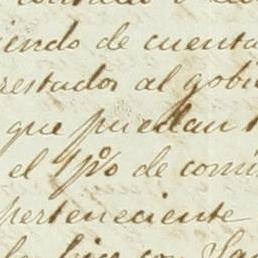 iendo de cuenta
restados al gobi
que puedan
el 1p% de comi
perteneciente